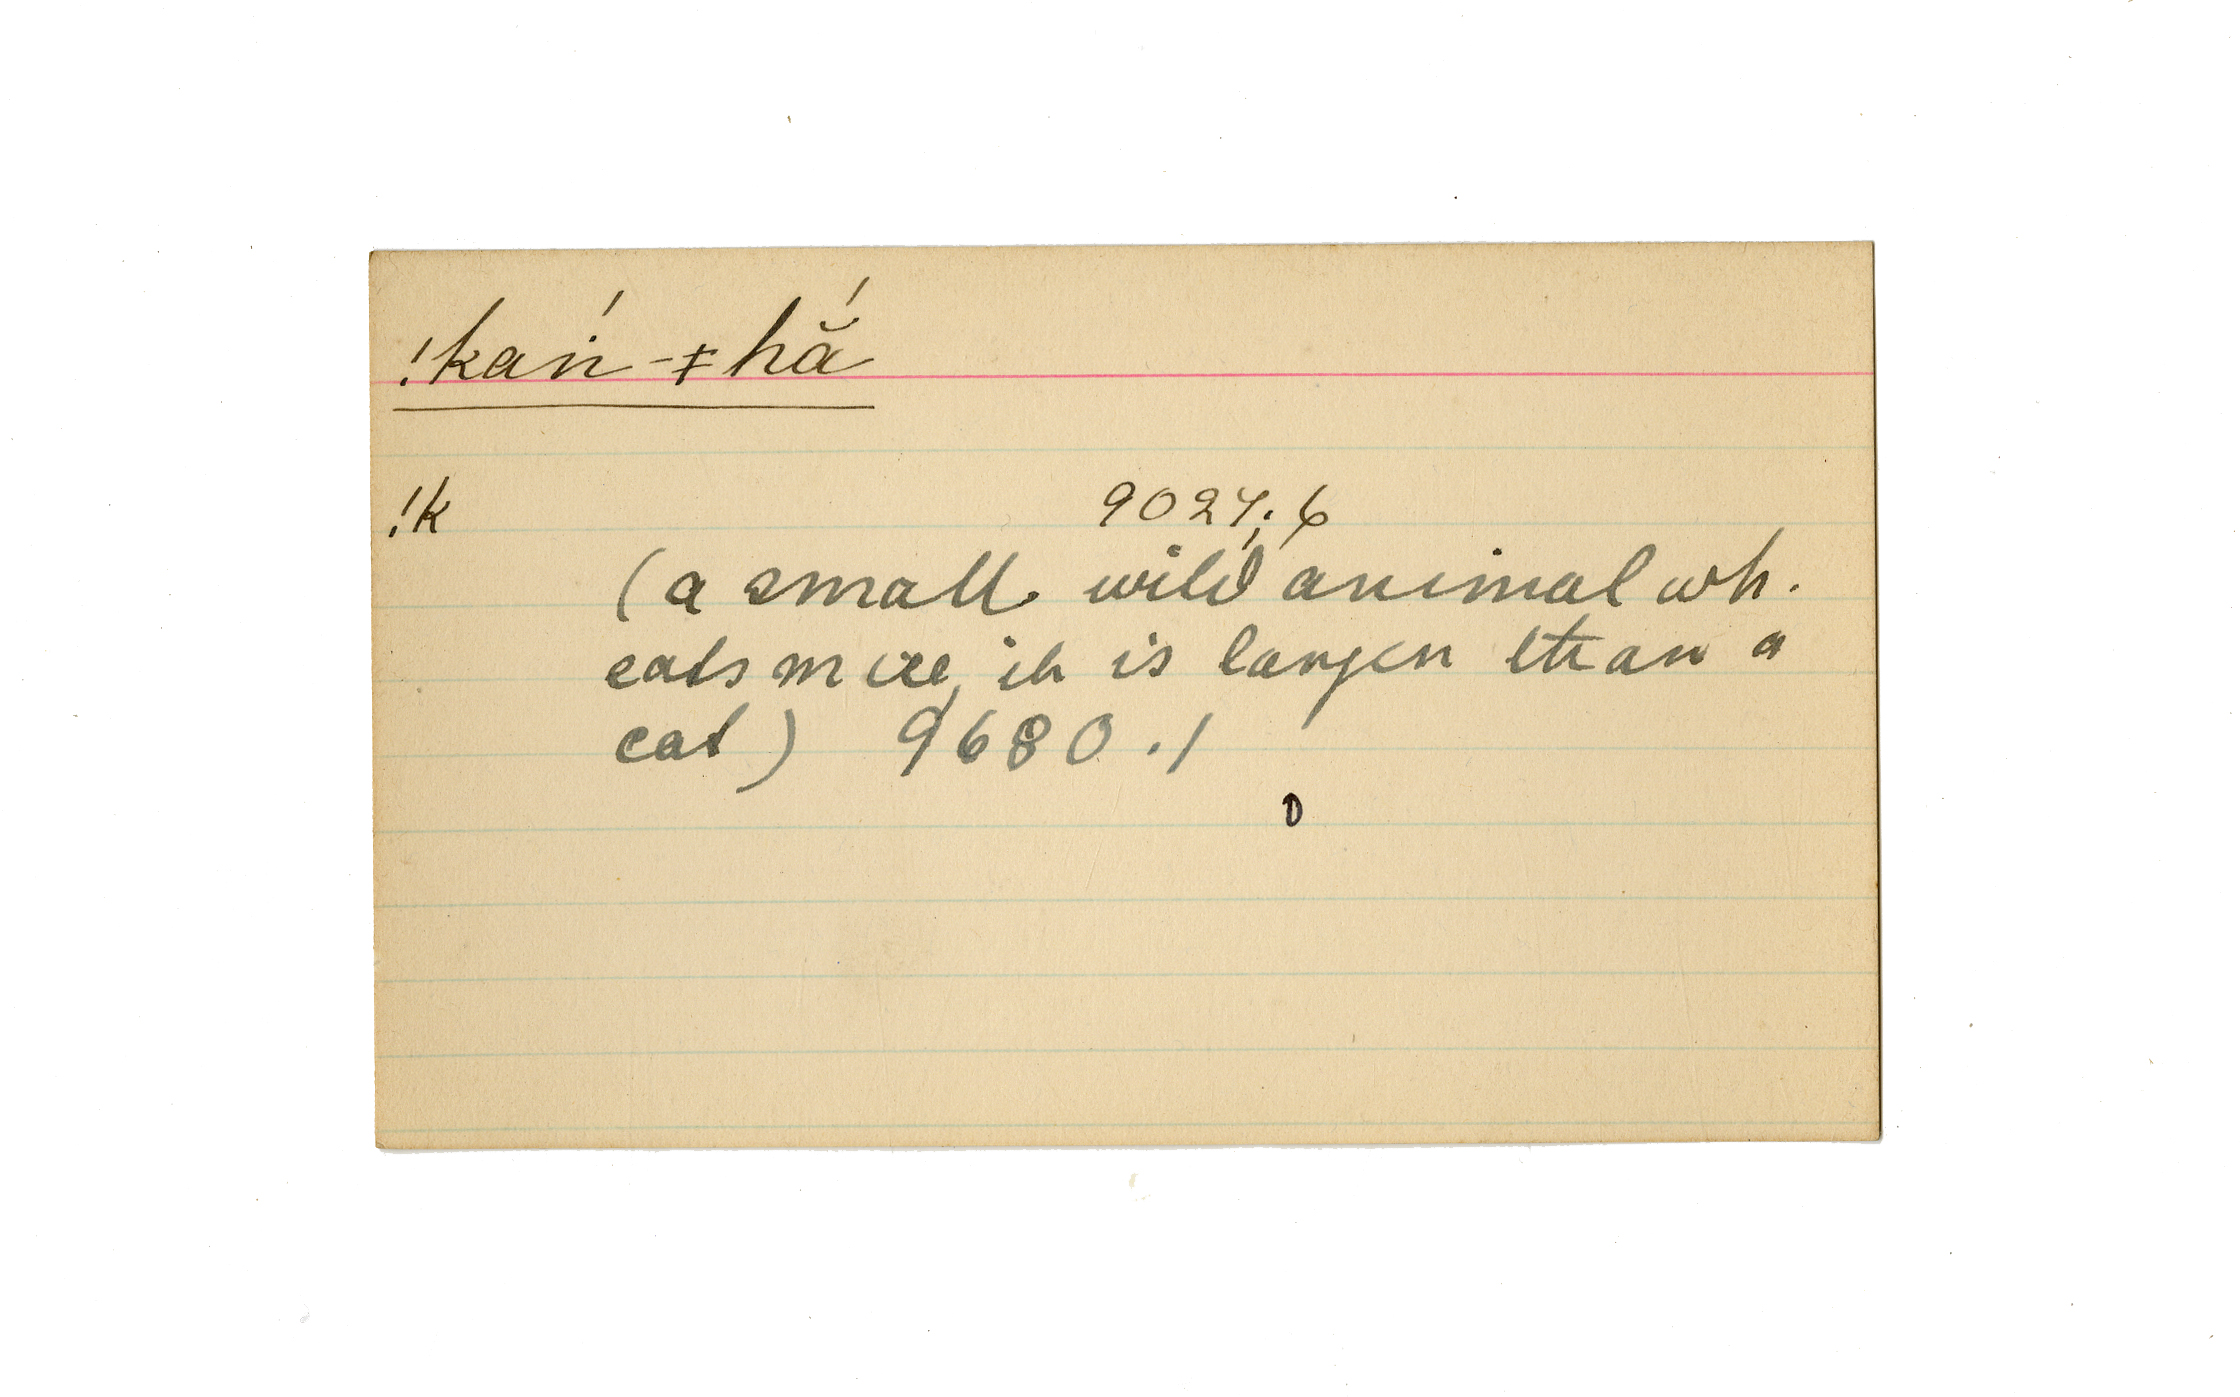 !kaṅ́-ǂhắ
!k 9027.6
(a small wild animal wh.
eats mice, it is larger than a
cat) 9680.1
D